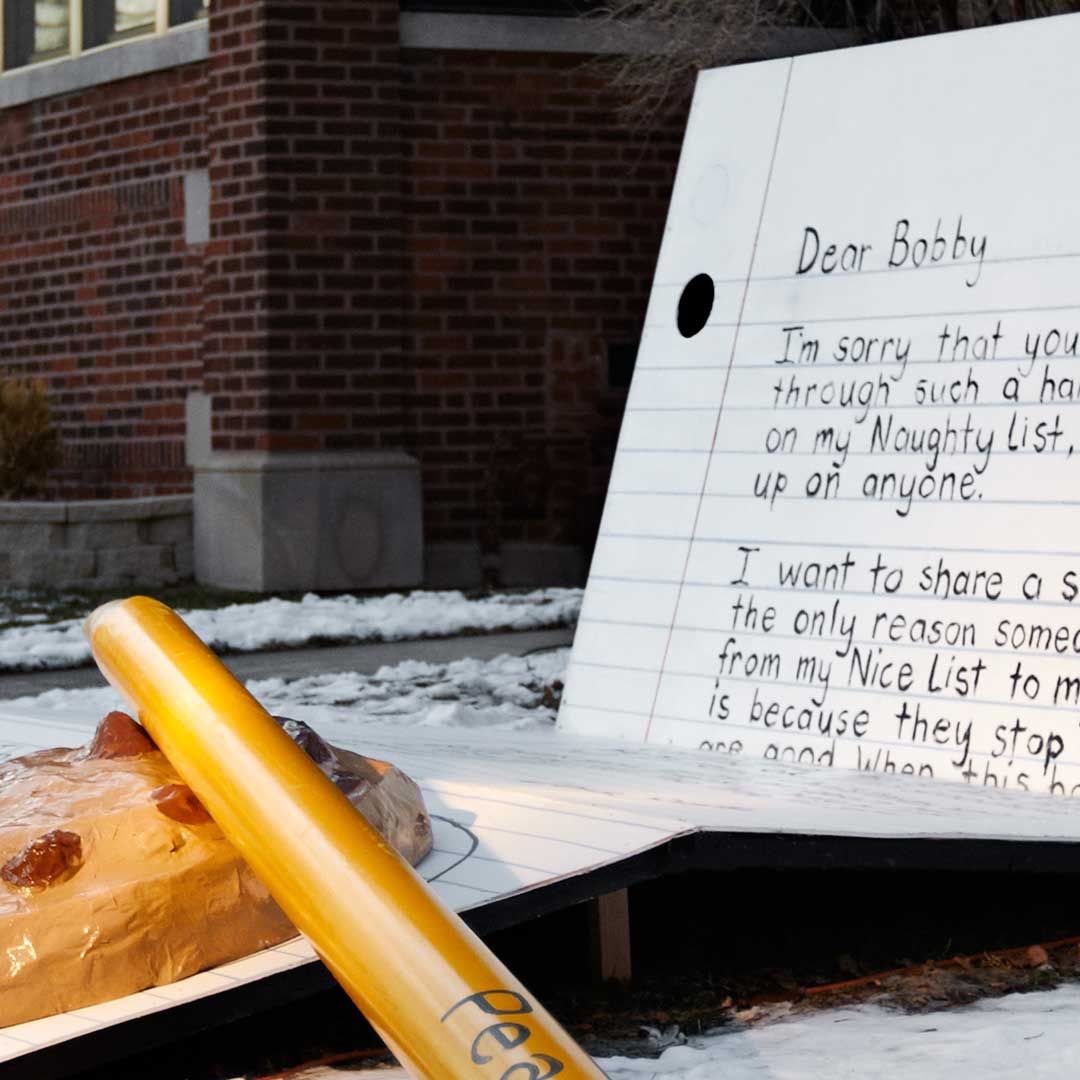 Dear Bobby
I'm sorry that you
through such a
on my Naughty List,
up on anyone.
I want to share a
the only reason
from my Nice List to
is because they stop
are good When this
Pea